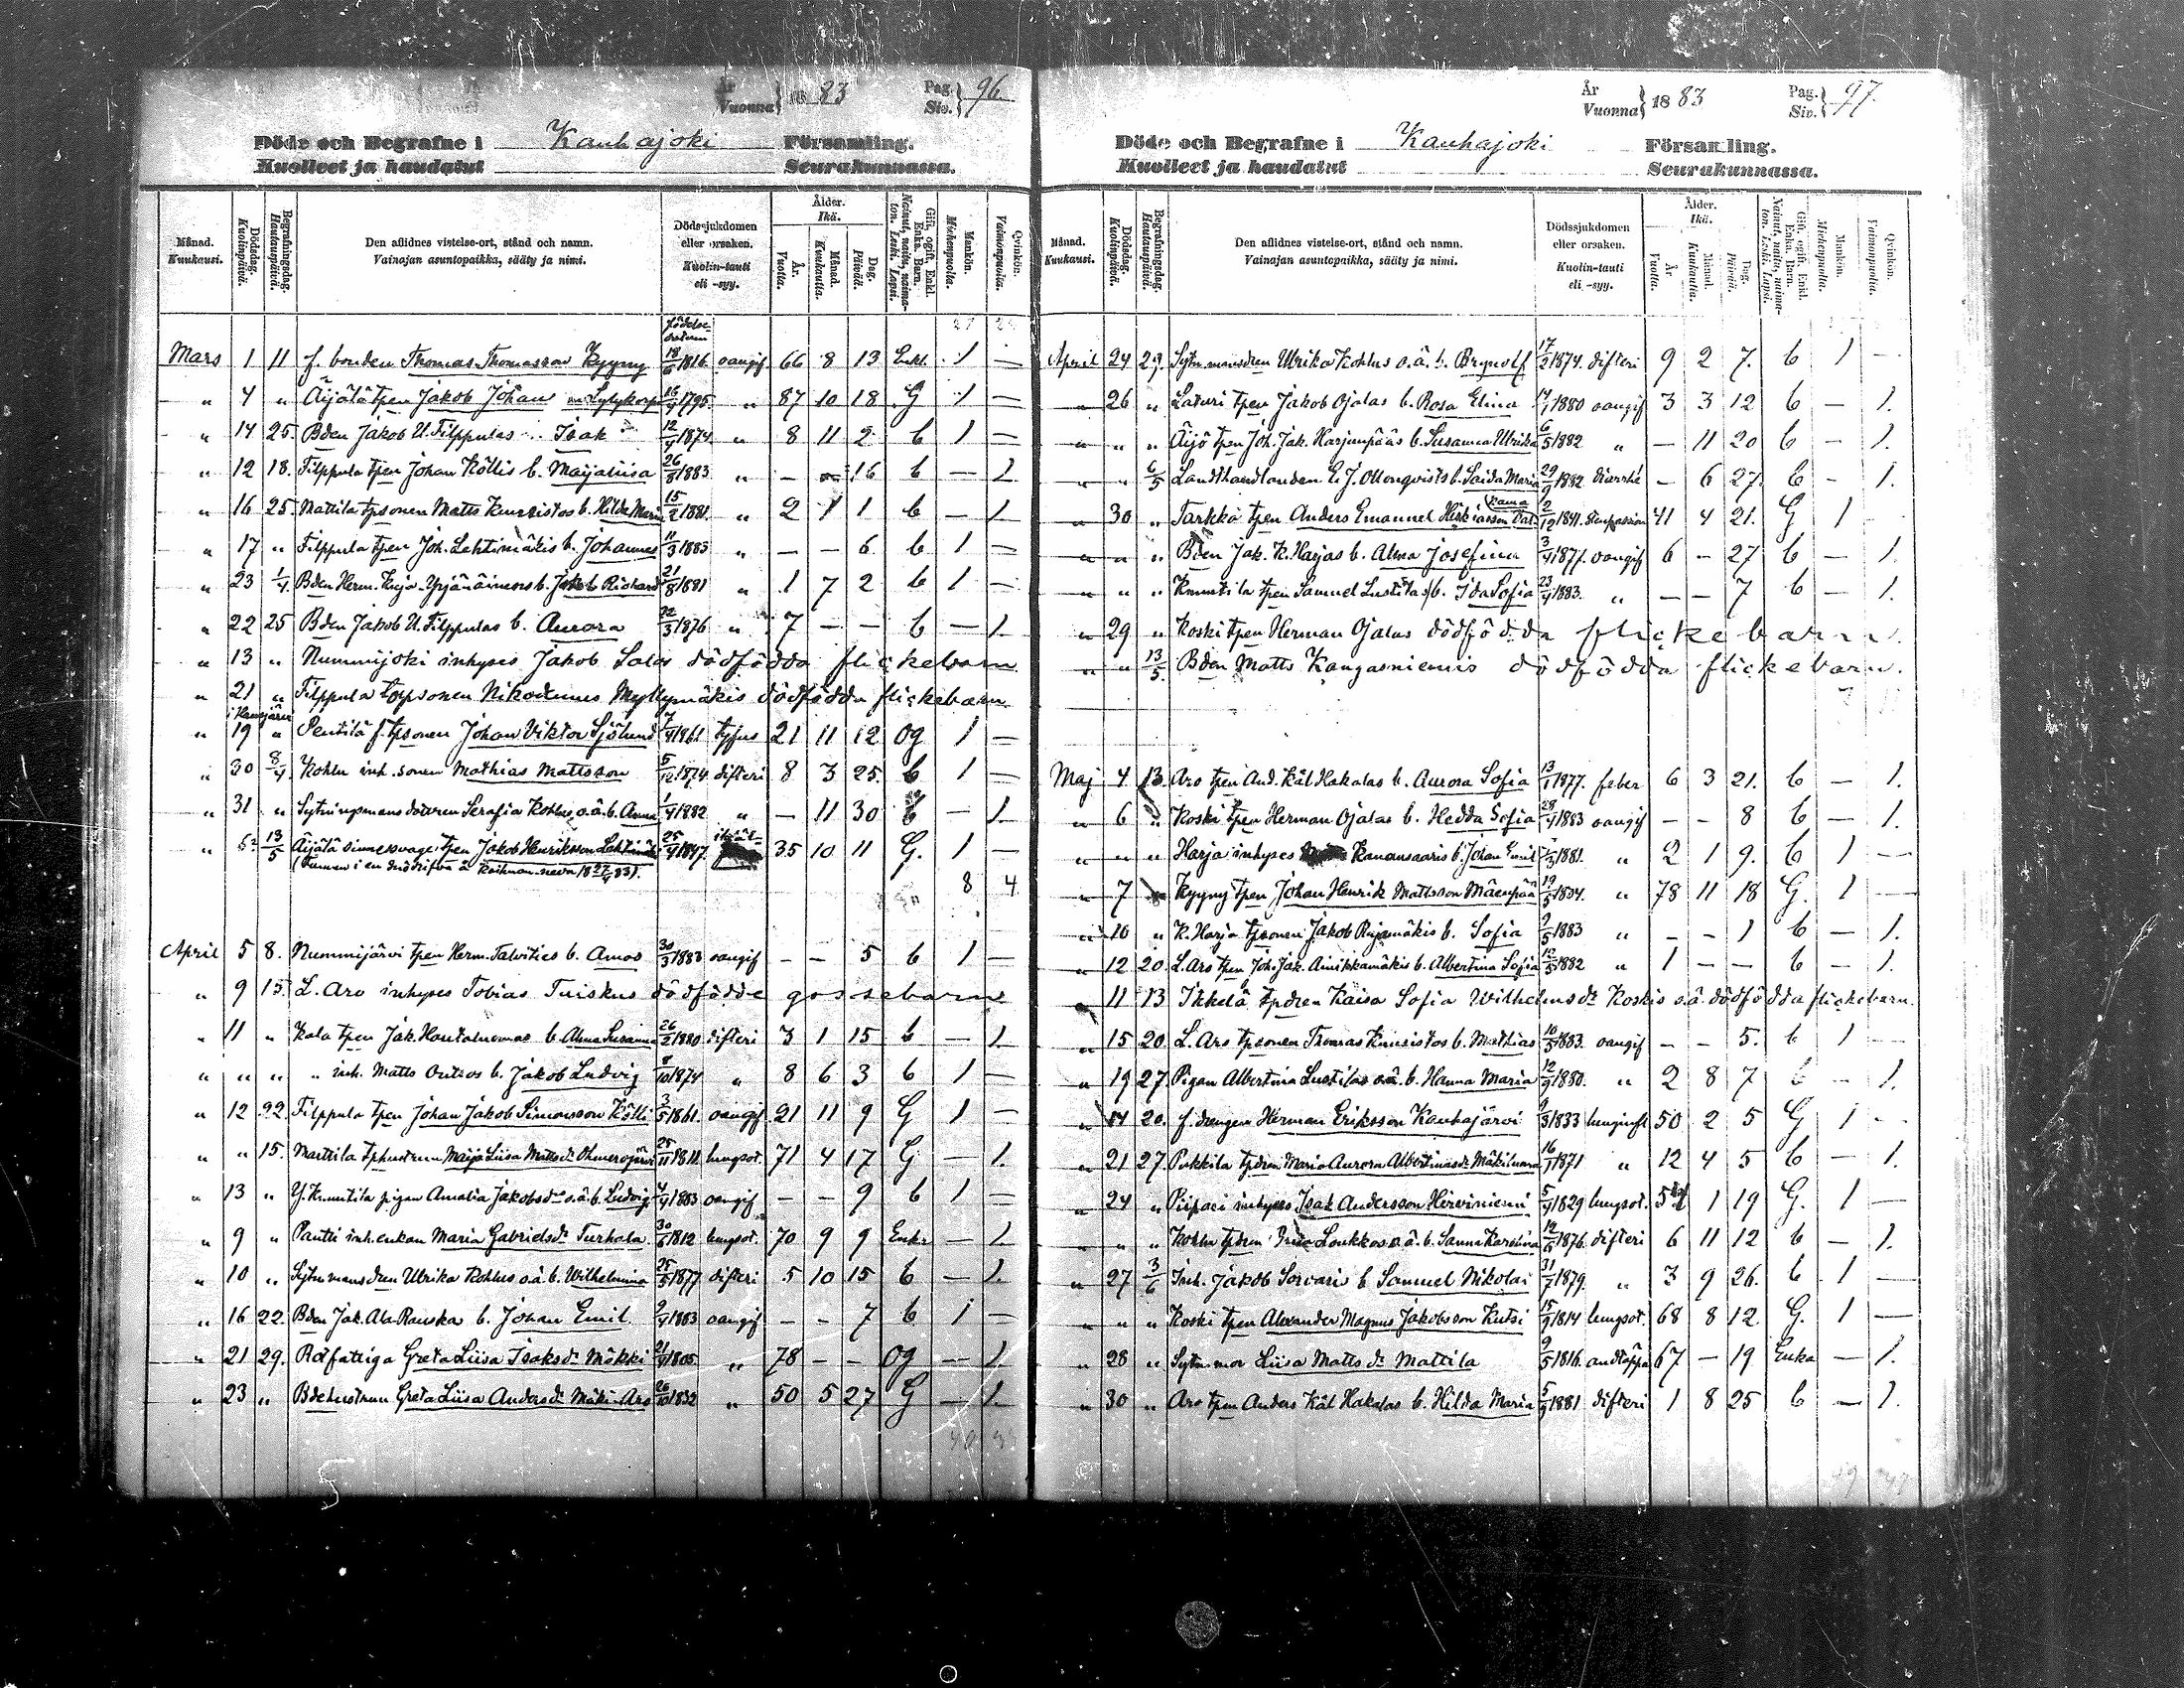 År Vuonna } 1883 Pag. Siv. } 96
Döde och Begrafne i Kauhajoki Församling.
Kuolleet ja haudatut Seurakunnassa.
Månad. Kuukausi. Dödsdag. Kuolinpäivä. Begrafningsdag. Hautauspäivä. Den aflidnes vistelse-ort, stånd och namn. Vainajan asuntopaikka, sääty ja nimi. Dödssjukdomen eller orsaken. Kuolin-tauti eli -syy. Ålder. Ikä. År. Vuotta. Månad. Kuukautta. Dag. Päivää. Gift, ogift, Enkl. Enka. Barn. Nainut, naitu, naimaton. Leski. Lapsi. Mankön. Miehenpuolia. Qvinkön. Vaimonpuolia.
födelse-datum
Mars 1 11 f. bonden Thomas Thomasson Kyyny 18/6 1816 oangif 66 8 13 Enkl. 1 —
" 4 " Äijälä tpen Jakob Johan 16/4 1795 " 87 10 18 G 1 —
" 14 25. Bden Jakob U. Filppulas Isak 12/4 1874 " 8 11 2 b 1 —
" 12 18. Filppula tpen Johan Köllis b. Maijaliisa 1883 " — — 16 b — 1
" 16 25 Mattila tpsonen Matts Kuusistos b. Hilda Maria 15/2 1881. " 2 1 1 b — 1
" 17 " Filppula tpen Joh. Lehtimäkis b. Johannes 11/3 1883 " — — 6 b 1 —
" 23 1/4. Bden Herm. Yrjänäinens b. Jakob Richard 21/8 1881 " 1 7 2 b 1 —
" 22 25 Bden Jakob U. Filppulas b. Aurora 22/3 1876 " 7 — — b — 1.
" 13 " Nummijoki inhyses Jakob Salos dödfödda flickebarn
" 21 " Filppula torpsonen Nikodemus Myllymäkis dödfödda flickebarn
" 19 " Pentilä f. tpsonen Johan Viktor Sjölund 7/4 1861. tyfus 21 11 12 og 1 —
" 30 8/4. Kohlu inh. sonen Mathias Mattsson 5/12 1874. difteri 8 3 25. b 1 —
" 31 " Sytningsmans dottren Serafia Kohlus o.ä. b. Anna 1/4 1882 " — 11 30 b — 1.
" 13/5 Äijälä sinnessvage tpen Jakob Henriksson 25/4 1847. 35 10 11 G. 1 —
8 4
April 5 8. Nummijärvi tpen Herm. Talvities b. Amos 30/3 1883 oangif — — 5 b 1 —
" 9 15. L. Aro inhyses Tobias Tuiskus dödfödde gossebarn
" 11 " Kala tpen Jak. b Alma Susanna 26/2 1880 difteri 3 1 15 b — 1
" " " " inh. Matts b. Jakob Ludvig 8/10 1874 " 8 6 3 b 1 —
" 12 22. Filppula tpen Johan Jakob Simonsson Kölli 3/5 1861. oangif 21 11 9 G 1 —
" " 15. Mattila tphustrun Maija Liisa Mattsdr 25/11 1811. lungsot. 71 4 17 G — 1.
" 13 " Y. Knuutila pigan Amalia Jakobsdr o.ä. b. Ludvig 4/4 1883 oangif — — 9 b 1 —
" 9 " Pantti inh. enkan Maria Gabrielsdr Turhala 30/6 1812 lungsot. 70 9 9 Enka — 1.
" 10 " Sytn. mans dren Ulrika Kohlus o.ä. b. Wilhelmina 25/5 1877 difteri 5 10 15 b — 1.
" 16 22. Bden Jak. Ala Rauska b. Johan Emil 9/4 1883 oangif — — 7 b 1 —
" 21 29. Rotfattiga Greta Liisa Isaksdr Mäkki 21/4 1805 " 78 — — og — 1.
" 23 " Bdehustrun Greta Liisa Andersdr Mäki-Aro 26/10 1832 " 50 5 27 G — 1.
År Vuonna } 1883 Pag. Siv. } 97.
Döde och Begrafne i Kauhajoki Församling.
Kuolleet ja haudatut Seurakunnassa.
Månad. Kuukausi. Dödsdag. Kuolinpäivä. Begrafningsdag. Hautauspäivä. Den aflidnes vistelse-ort, stånd och namn. Vainajan asuntopaikka, sääty ja nimi. Dödssjukdomen eller orsaken. Kuolin-tauti eli -syy. Ålder. Ikä. År. Vuotta. Månad. Kuukautta. Dag. Päivää. Gift, ogift, Enkl. Enka. Barn. Nainut, naitu, naimaton. Leski. Lapsi. Mankön. Miehenpuolia. Qvinkön. Vaimonpuolia.
April 24 29. Sytn. mansdren Ulrika Kohlus o.ä. b. Brynolf 17/2 1874. difteri 9 2 7. b 1 —
" 26 " Laturi tpen Jakob Ojalas b. Rosa Elina 14/1 1880 oangif 3 3 12 b — 1.
" " " Äijö tpen Joh. Jak. Harjunpääs b. Susanna Ulrika 6/5 1882 " — 11 20 b — 1.
" " 6/5 Landthandlanden E. J. b. Saida Maria 29/9 1882 diarrhé — 6 27. b — 1.
" 30 " Tarkka tpen Anders Emanuel 2/12 1841. 41 4 21. G 1
" " " Bden Jak. K. Harjas b. Alma Josefina 3/4 1877. oangif 6 — 27 b — 1.
" " " Knuutila tpen Samuel Lustilas b. Ida Sofia 23/4 1883. " — — 7 b — 1.
" 29 " Koski tpen Herman Ojalas dödfödda flickebarn.
" " 13/5. Bden Matts Kangasniemis dödfödda flickebarn.
Maj 4 13. Aro tpen And. Käl Hakalas b. Aurora Sofia 13/1 1877. feber 6 3 21. b — 1.
" 6 " Koski tpen Herman Ojalas b. Hedda Sofia 28/4 1883 oangif — — 8 b — 1.
" " " Harja inhyses Kanansaaris b. Johan Emil 1881. " 2 1 9. b 1 —
" 7 " Kyyny tpen Johan Henrik Mattsson Mäenpää 19/5 1804. " 78 11 18 G. 1 —
" 10 " K. Harja tpsonen Jakob Rajamäkis b. Sofia 9/5 1883 " — — 1 b — 1.
" 12 20. L. Aro tpen Joh. Jak. b. Albertina Sofia 12/5 1882 " 1 — — b — 1.
" 11 13 Ikkelä tpdren Kaisa Sofia Wilhelmsdr Koskis o.ä. dödfödda flickebarn.
" 15 20. L. Aro tpsonen Thomas Kuusistos b. Mathias 10/5 1883. oangif — — 5. b 1 —
" 19 27 Pigan Albertina Lustilas o.ä. b. Hanna Maria 12/9 1880. " 2 8 7 b — 1.
" 14 20. f. drengen Herman Eriksson Kauhajärvi 9/3 1833 lunginfl 50 2 5 G 1 —
" 21 27. Pukkila tpdren Maria Aurora Albertinasdr 16/1 1871 " 12 4 5 b — 1.
" 24 " Piipari inhyses Isak Andersson Hirviniemi 5/4 1829 lungsot. 54 1 19 G. 1 —
" " " Kohlu tpdren Loukkos o.ä. b. Sanna Karolina 12/6 1876. difteri 6 11 12 b — 1.
" 27 3/6 Inh. Jakob Sorvaris b Samuel Nikolai 31/7 1879. " 3 9 26. b 1 —
" " " Koski tpen Alexander Magnus Jakobsson Kutsi 15/9 1814 lungsot. 68 8 12. G. 1 —
" 28 " Sytn. mor Liisa Matts dr Mattila 9/5 1816. andtäppa 67 — 19 Enka — 1.
" 30 " Aro tpen Anders Käl Hakalas b. Hilda Maria 5/9 1881 difteri 1 8 25 b — 1.